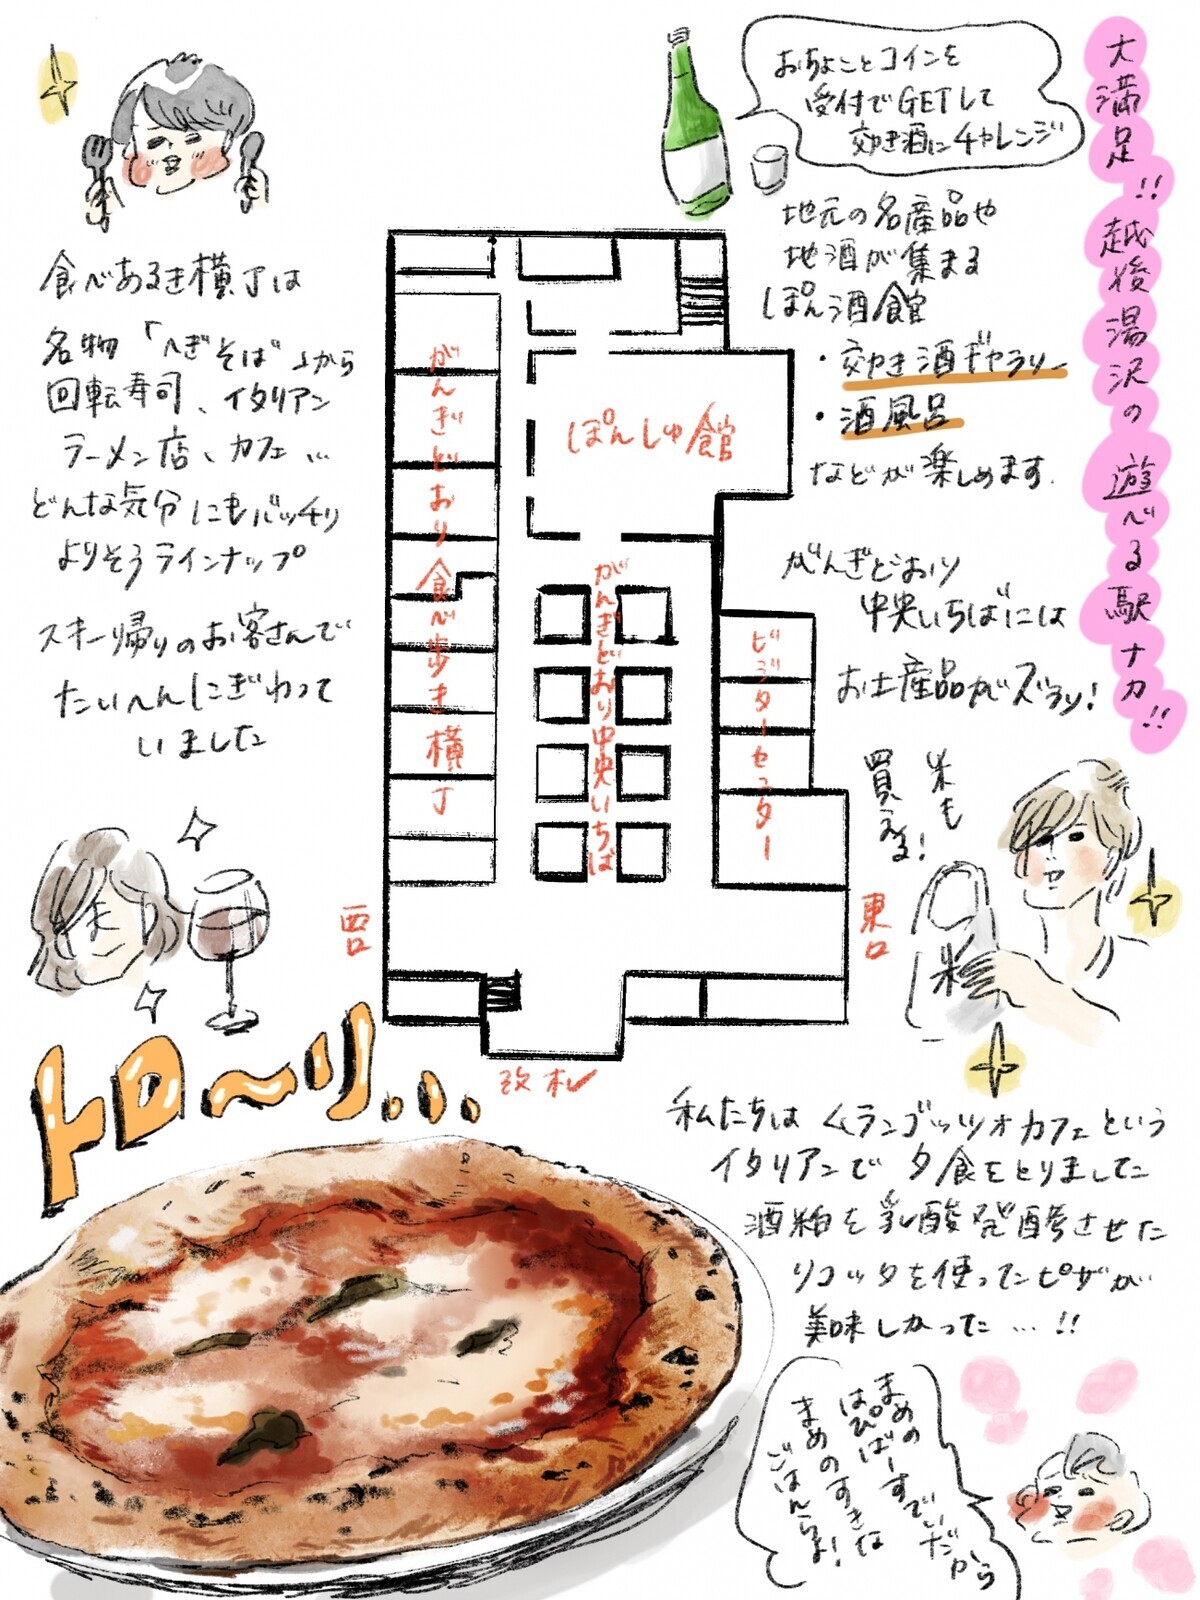 大満足!!越後湯沢の遊べる駅ナカ!!
おちょことコインを
受付でGETして
効き酒にチャレンジ
地元の名産品や
地酒が集まる
ぽん酒館
・効き酒ギャラリー
・酒風呂
などが楽しめます.
がんぎどおり
中央いちばには
お土産品がズラリ!
米も
買える!
米
食べあるき横丁は
名物「へぎそば」から
回転寿司、イタリアン
ラーメン店、カフェ…
どんな気分にもバッチリ
よりそうラインナップ
スキー帰りのお客さんで
たいへんにぎわって
いました
がんぎどおり食べ歩き横丁
ぽんしゅ館
がんぎどおり中央いちば
ビジターセンター
西口
東口
改札
トロ〜リ...
私たちはムランゴッツォカフェという
イタリアンで夕食をとりました
酒粕を乳酸発酵させた
リコッタを使ったピザが
美味しかった…!!
まめの
はぴばーすでいだから
まめのすきな
ごはんらよ!